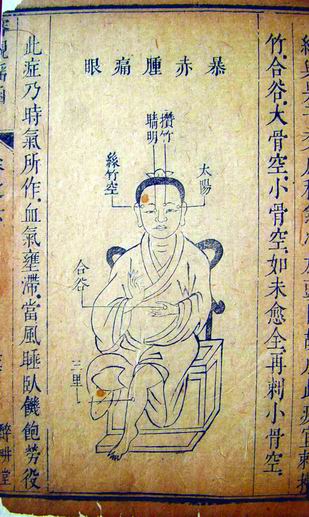 竹合谷大骨空小骨空如未愈全再刺小骨空
暴赤腫痛眼
攢竹
睛明
太陽
絲竹空
合谷
三里
此症乃時氣所作血氣壅滯當風睡臥饑飽勞役
醉畊堂